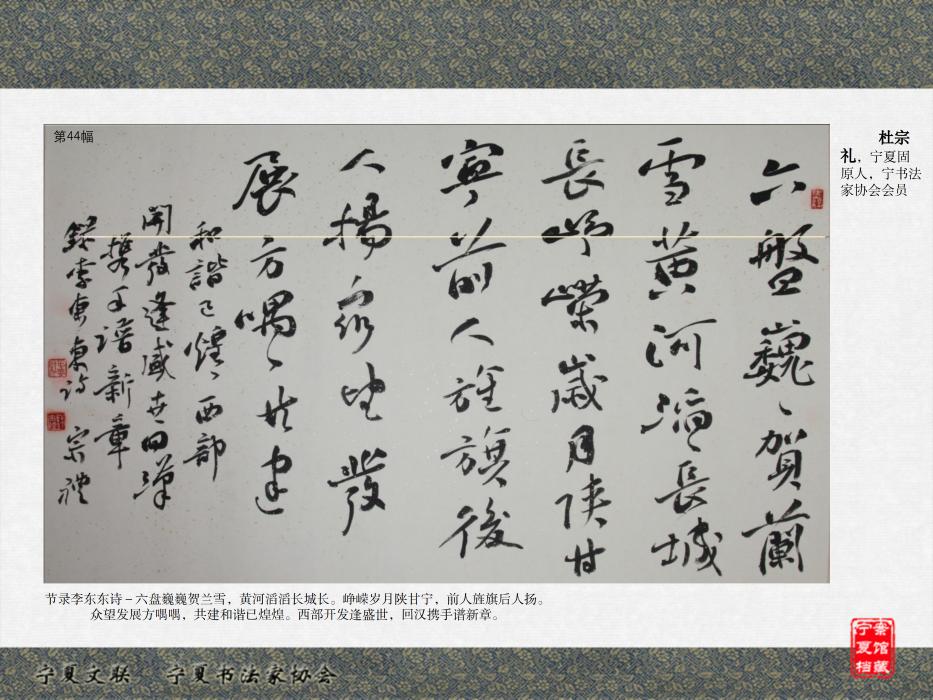 第44幅
六盤巍〻賀蘭
雪黄河滔〻長城
長崢嶸歲月陕甘
寧前人旌旗後
人揚衆望發
展方喁〻共建
和諧已煌〻西部
開發逢盛世回漢
携手譜新章
録李東東詩 宗禮
杜宗
礼，宁夏固
原人，宁书法
家协会会员
节录李东东诗－六盘巍巍贺兰雪，黄河滔滔长城长。峥嵘岁月陕甘宁，前人旌旗后人扬。
众望发展方喁喁，共建和谐已煌煌。西部开发逢盛世，回汉携手谱新章。
宁夏文联 宁夏书法家协会
宁夏档
案馆藏